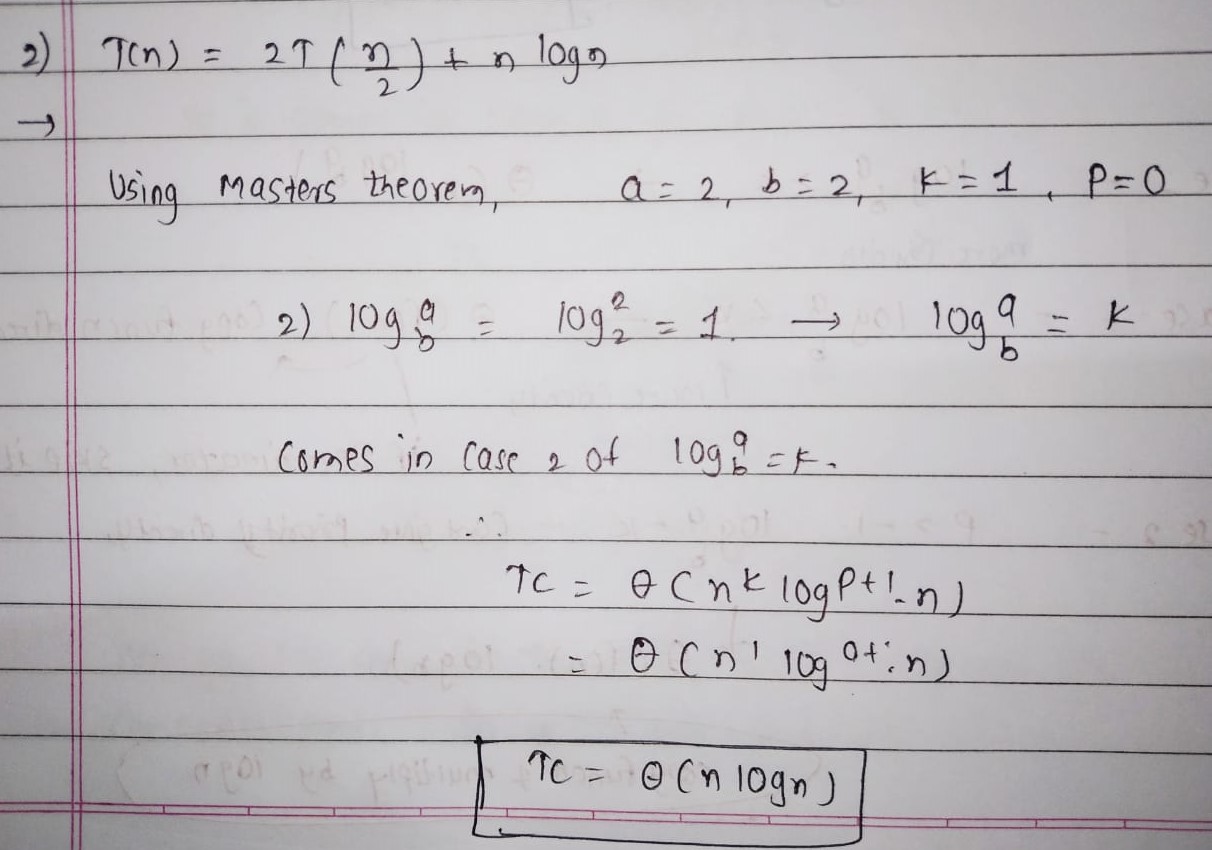 2) T(n) = 2T(n/2) + n log n
→
Using Masters theorem, a = 2, b = 2, k = 1, P = 0
2) log_b^a = log_2^2 = 1. → log_b^a = k
Comes in case 2 of log_b^a = k.
∴
TC = θ(n^k log^{P+1} n)
= θ(n^1 log^{0+1} n)
TC = θ(n log n)